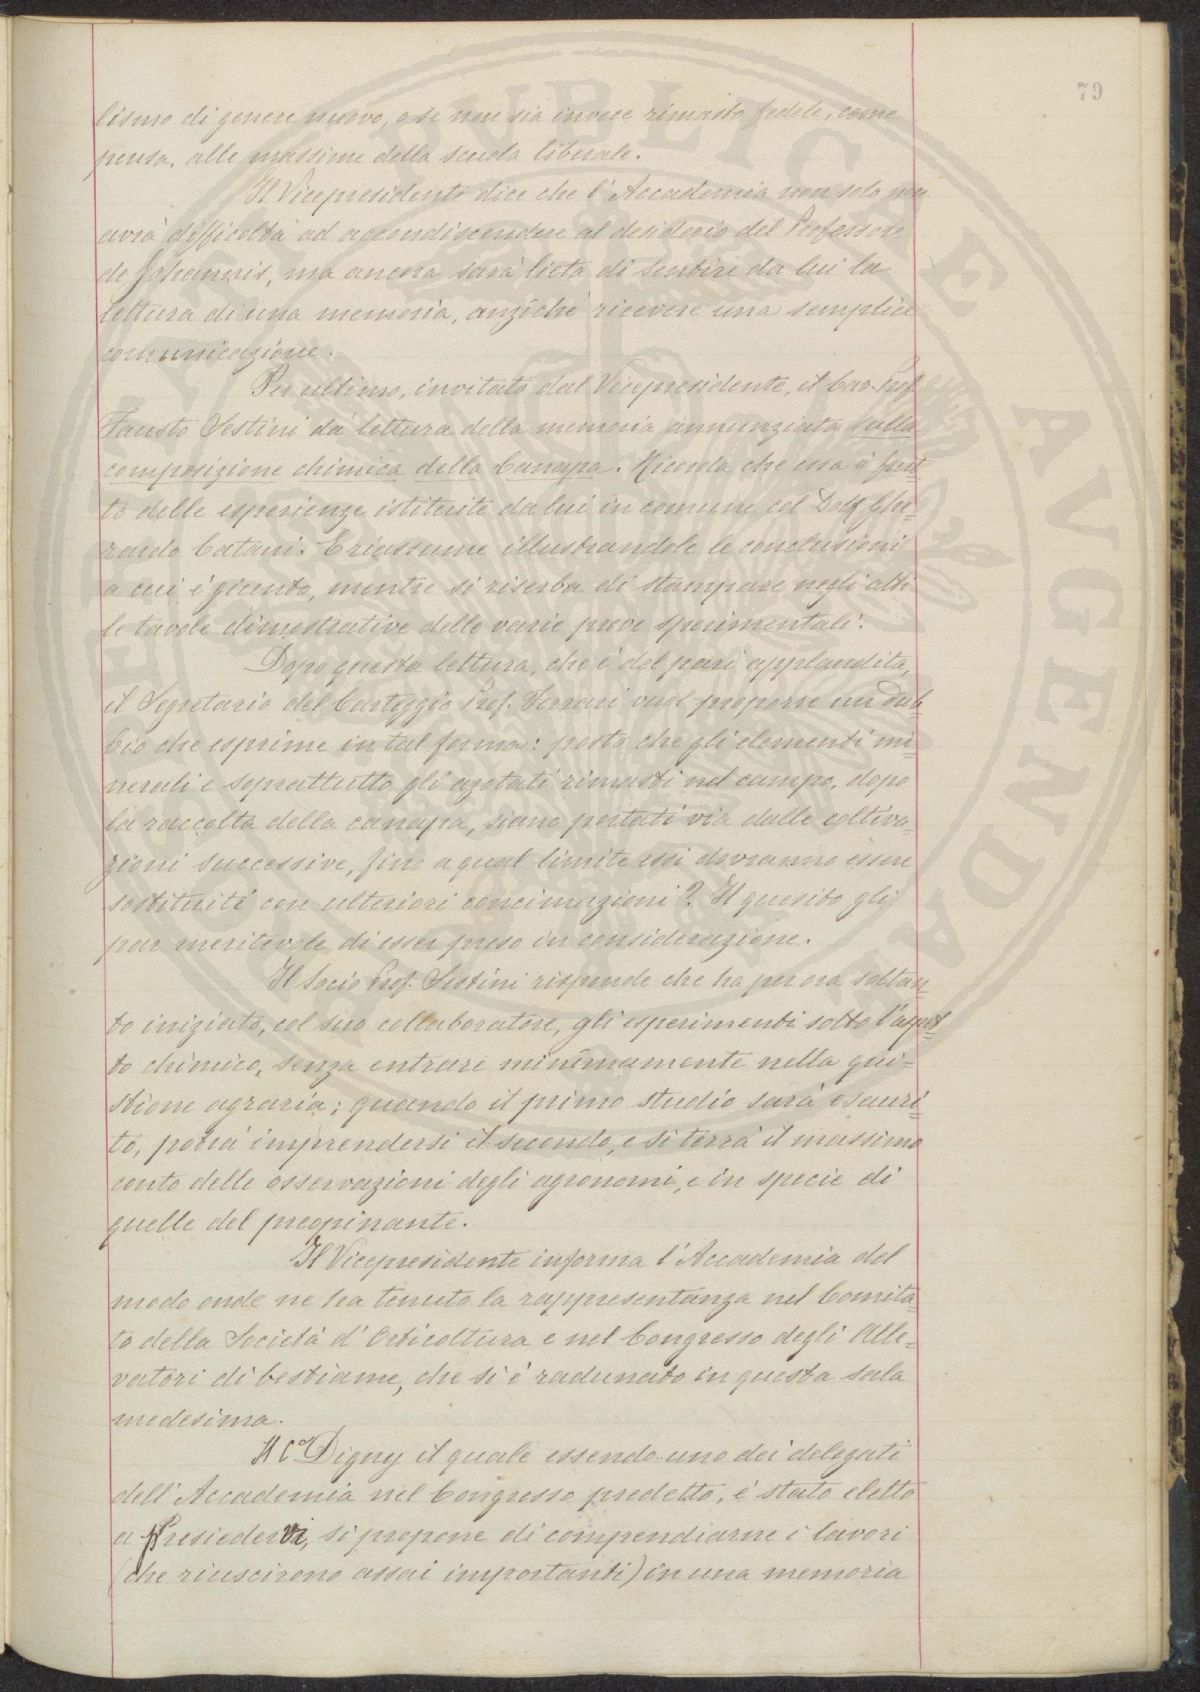 79
lismo di genere nuovo, o se non sia invece rimasto fedele, come
pensa, alle massime della scuola liberale.
Il Vicepresidente dice che l'Accademia non solo non
avrà difficoltà ad accondiscendere al desiderio del Professore
de Johannis, ma ancora sarà lieta di sentire da lui la
lettura di una memoria, anziché ricevere una semplice
comunicazione.
Per ultimo, invitato dal Vicepresidente, il Cav. Prof.
Fausto Sestini dà lettura della memoria annunziata sulla
composizione chimica della Canapa. Ricorda che essa è frut-
to delle esperienze istituite da lui in comune col Dott. Ghe-
rardo Catani. E riassume illustrandole le conclusioni
a cui è giunto, mentre si riserba di stampare negli atti
le tavole dimostrative delle varie prove sperimentali.
Dopo questa lettura, che è del pari applaudita,
il Segretario del Carteggio Prof. Ferrari vuol proporre un dub-
bio che esprime in tal forma: posto che gli elementi mi-
nerali e soprattutto gli azotati rimasti nel campo, dopo
la raccolta della canapa, siano portati via dalle coltiva-
zioni successive, fino a qual limite essi dovranno essere
sostituiti con ulteriori concimazioni? Il quesito gli
par meritevole di esser preso in considerazione.
Il Socio Prof. Sestini risponde che ha per ora soltan-
to iniziato, col suo collaboratore, gli esperimenti sotto l'aspet-
to chimico, senza entrare minimamente nella qui-
stione agraria; quando il primo studio sarà esauri-
to, potrà imprendersi il secondo, e si terrà il massimo
conto delle osservazioni degli agronomi, e in specie di
quelle del preopinante.
Il Vicepresidente informa l'Accademia del
modo onde ne ha tenuto la rappresentanza nel Comita-
to della Società d'Orticoltura e nel Congresso degli Alle-
vatori di bestiame, che si è radunato in questa sala
medesima.
Il Co Digny il quale essendo uno dei delegati
dell'Accademia nel Congresso predetto, è stato eletto
a presiedervi, si propone di compendiarne i lavori
(che riuscirono assai importanti) in una memoria